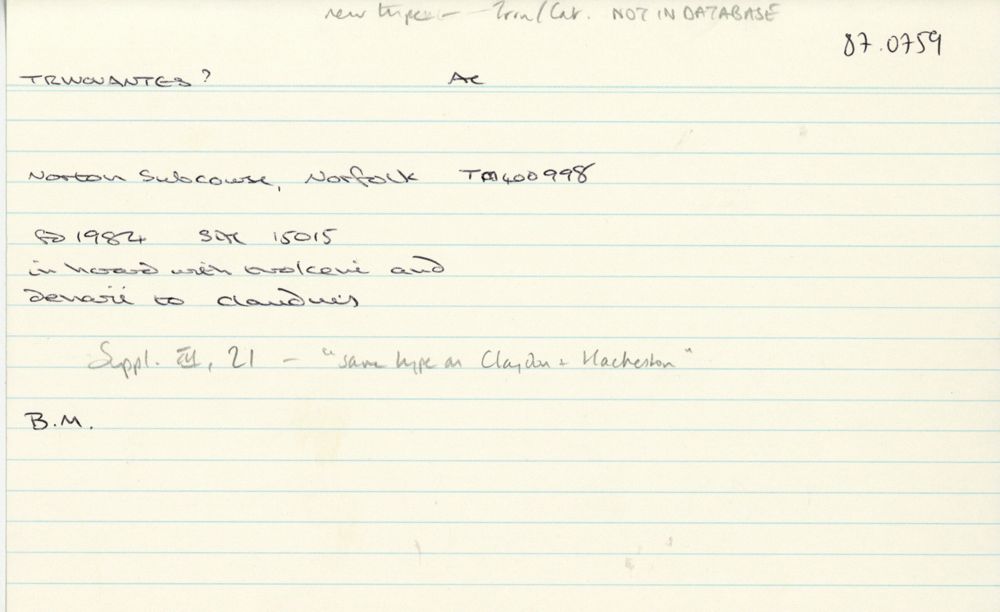 new type — Trin/Cat. NOT IN DATABASE
87.0759
TRINOVANTES? AE
Norton Subcourse, Norfolk TM400998
fd 1982 SAC 15015
in hoard with ovolceni and
denarii to Claudius
Suppl. III, 21 — "same type as Claydon + Hacheston"
B.M.